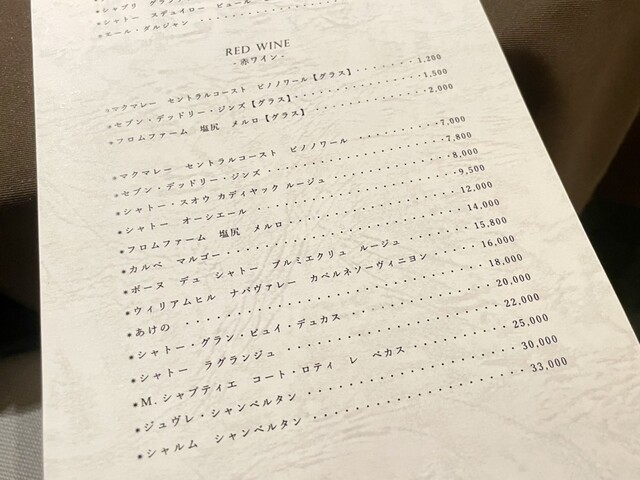 *シャブリ グラン
*シャトー スデュイロー ビュール
*エール・ダルジャン
RED WINE
-赤ワイン-
*マクマレー セントラルコースト ピノノワール【グラス】 ・・・・・・・・ 1,200
*セブン・デッドリー・ジンズ【グラス】・・・・・・・・・・・・ 1,500
*フロムファーム 塩尻 メルロ【グラス】 ・・・・・・・・・・・ 2,000
*マクマレー セントラルコースト ピノノワール ・・・・・・・・・7,000
*セブン・デッドリー・ジンズ ・・・・・・・・・・・・・・・・・7,800
*シャトー・スオウ カディヤック ルージュ ・・・・・・・・・・・ 8,000
*シャトー オーシエール ・・・・・・・・・・・・・・・・・・・ 9,500
*フロムファーム 塩尻 メルロ ・・・・・・・・・・・・・・・・ 12,000
*カルベ マルゴー ・・・・・・・・・・・・・・・・・・・・・ 14,000
*ボーヌ デュ シャトー プルミエクリュ ルージュ ・・・・・・・ 15,800
*ウィリアムヒル ナパヴァレー カベルネソーヴィニヨン ・・・・・ 16,000
*あけの ・・・・・・・・・・・・・・・・・・・・・・・・・ 18,000
*シャトー・グラン・ピュイ・デュカス ・・・・・・・・・・・・・ 20,000
*シャトー ラグランジュ ・・・・・・・・・・・・・・・・・・ 22,000
*M.シャプティエ コート・ロティ レ ベカス ・・・・・・・・・ 25,000
*ジュヴレ・シャンベルタン ・・・・・・・・・・・・・・・・・ 30,000
*シャルム シャンベルタン ・・・・・・・・・・・・・・・・・ 33,000